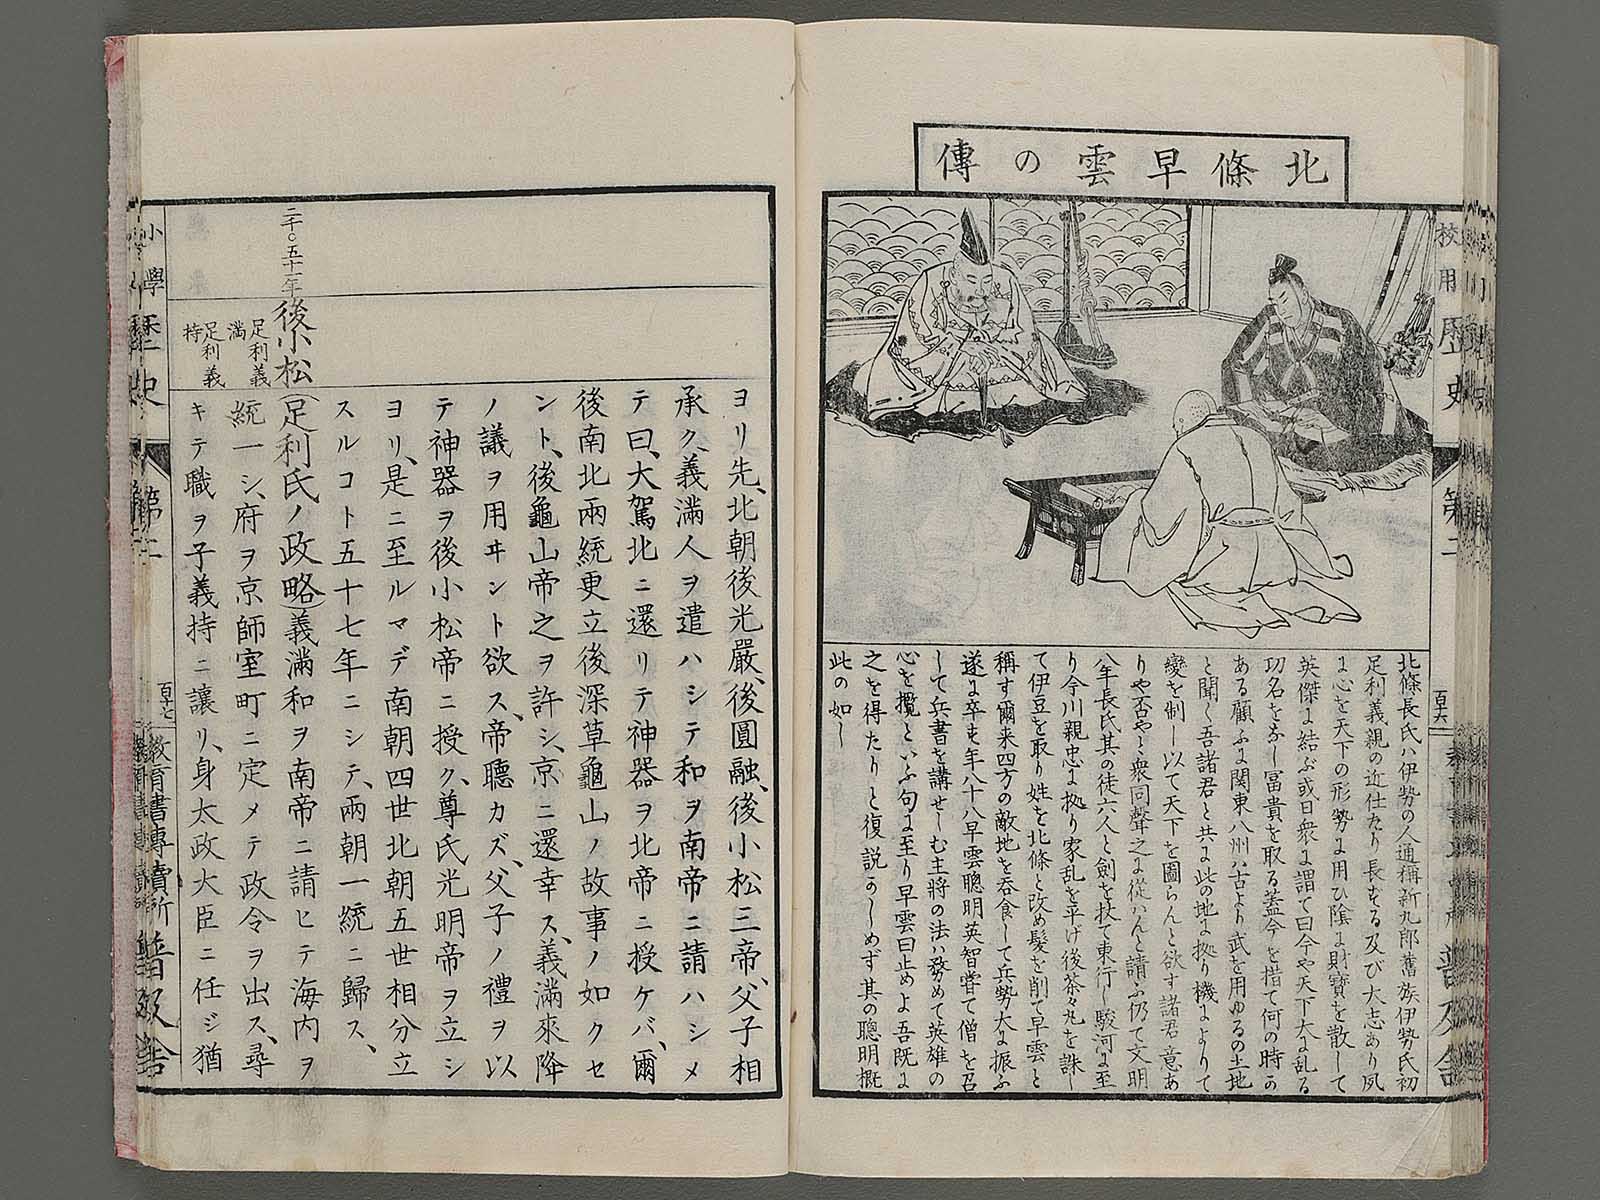 北條早雲の傳
校用歴史
第二
百十六
普及舎
北條長氏ハ伊勢の人通稱新九郎舊族伊勢氏初
足利義親の近仕たり長ずる及び大志あり夙
に心を天下の形勢に用ひ陰に財寶を散して
英傑に結ぶ或日衆に謂て曰今や天下大に乱る
功名をなし冨貴を取る蓋今を措て何の時か
ある顧ふに関東八州ハ古より武を用ゆるの土地
と聞く吾諸君と共に此の地に拠り機によりて
變を制し以て天下を圖らんと欲す諸君意あ
りや否やと衆同聲之に從はんと請ふ仍て文明
八年長氏其の徒六人と劍を杖て東行し駿河に至
り今川親忠に拠り家乱を平げ後茶々丸を誅し
て伊豆を取り姓を北條と改め髪を削て早雲と
稱す爾来四方の敵地を呑食して兵勢大に振ふ
遂に卒す年八十八早雲聰明英智嘗て僧を召
して兵書を講せしむ主將の法ハ務めて英雄の
心を攬といふ句に至り早雲曰止めよ吾既に
之を得たりと復説かしめず其の聰明概
此の如し
ヨリ先、北朝後光嚴、後圓融、後小松三帝、父子相
承ク、義滿人ヲ遣ハシテ和ヲ南帝ニ請ハシメ
テ曰、大駕北ニ還リテ神器ヲ北帝ニ授ケバ、爾
後南北兩統更立後深草龜山ノ故事ノ如クセ
ント、後龜山帝之ヲ許シ、京ニ還幸ス、義滿來降
ノ議ヲ用ヰント欲ス、帝聽カズ、父子ノ禮ヲ以
テ神器ヲ後小松帝ニ授ク、尊氏光明帝ヲ立シ
ヨリ、是ニ至ルマデ南朝四世北朝五世相分立
スルコト五十七年ニシテ、兩朝一統ニ歸ス、
二千〇五十二年
後小松
(足利氏ノ政略)義滿和ヲ南帝ニ請ヒテ海内ヲ
足利義
滿
統一シ、府ヲ京師室町ニ定メテ政令ヲ出ス、尋
足利義
持
キテ職ヲ子義持ニ讓リ、身太政大臣ニ任ジ猶
小學歴史
第二
百十七
教育書專賣所
普及舎